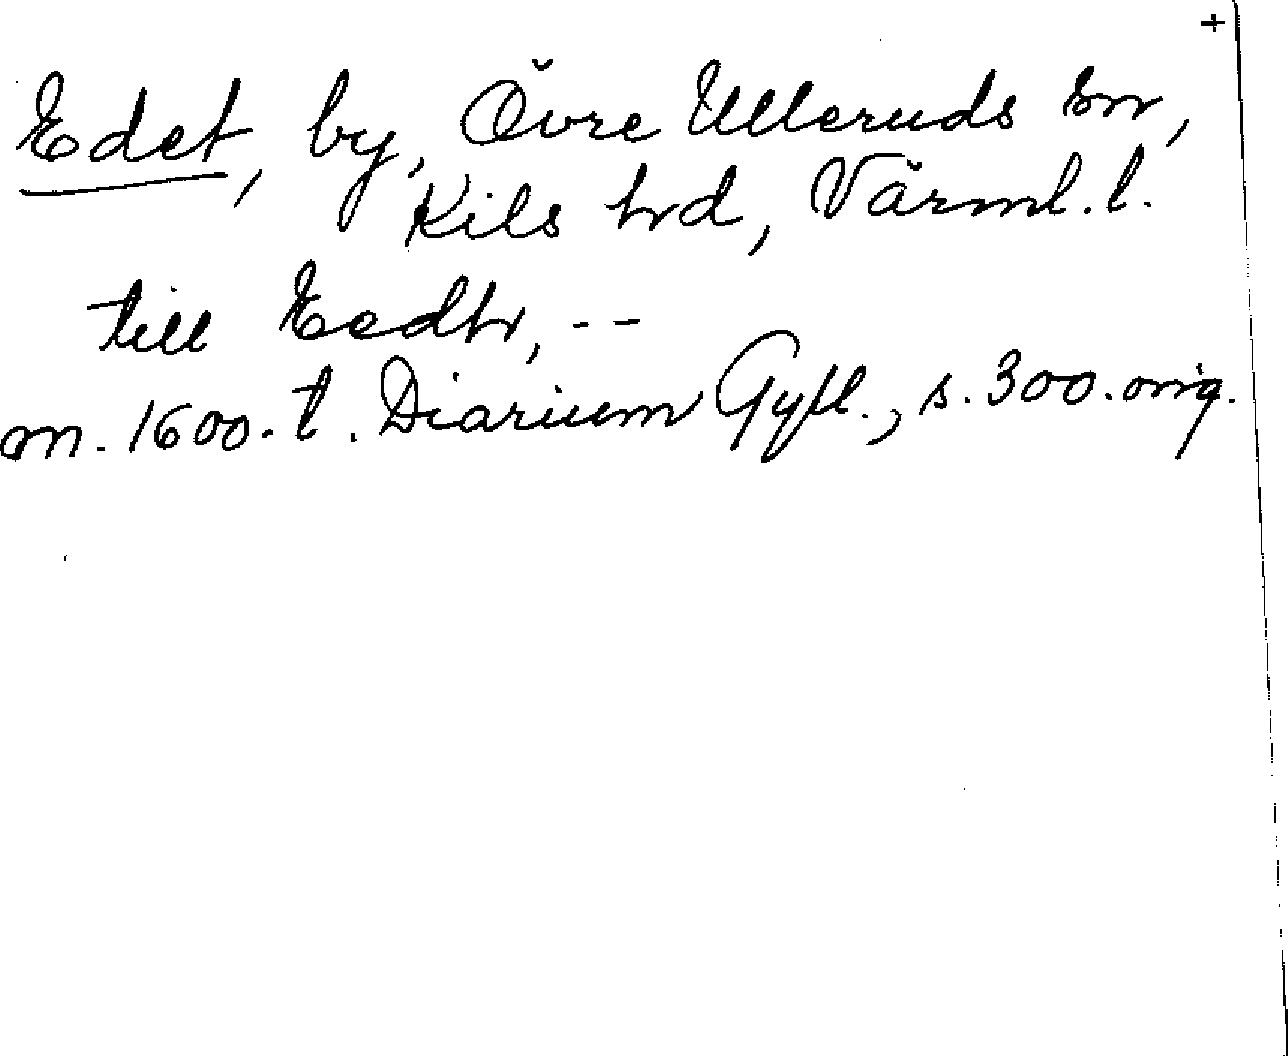 +
Edet, by, Övre Ulleruds sn,
Kils hd, Värml. l.
till Eedh, --
m. 1600. t. Diarium Gyll., s. 300. orig.